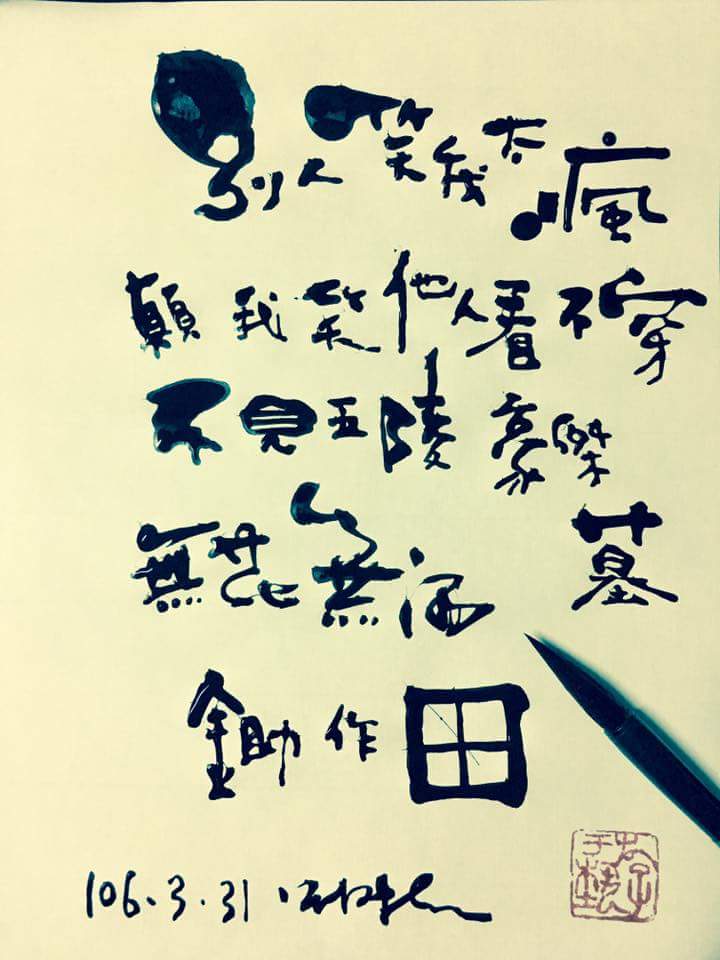 別人笑我太瘋
顛我笑他人看不穿
不見五陵豪傑
墓
無花無酒
鋤作田
106.3.31